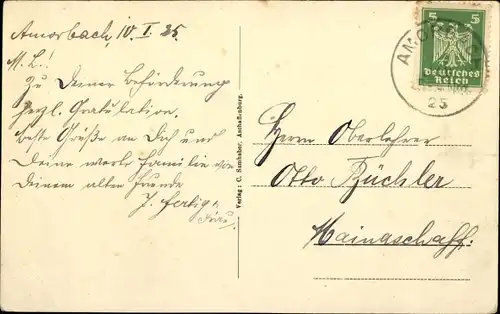 Amorbach, 10. I. 25.
M. L.!
Zu Deiner Beförderung
herzl. Gratulation.
beste Grüße an Dich und
Deine werte Familie von
Deinem alten Freunde
J. Fertig
Verlag: C. Samhaber, Aschaffenburg.
5 5
Deutsches
Reich
AMOR
25
Herrn Oberlehrer
Otto Büchler
Mainaschaff.